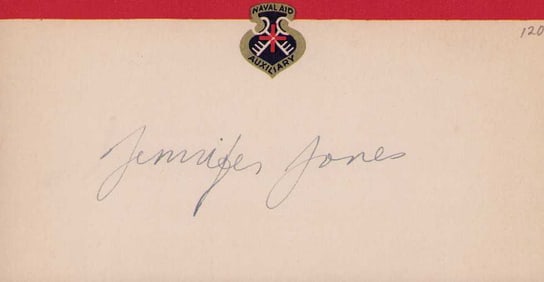 NAVAL AID
AUXILIARY
120
Jennifer Jones